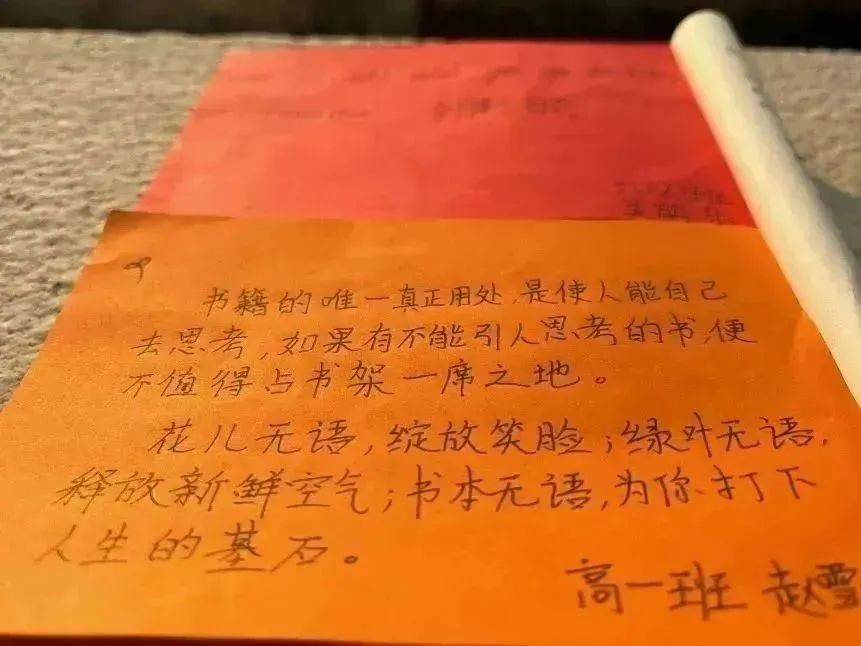 书籍的唯一真正用处,是使人能自己
去思考,如果有不能引人思考的书,便
不值得占书架一席之地。
花儿无语,绽放笑脸;绿叶无语,
释放新鲜空气;书本无语,为你打下
人生的基石。
高一班 赵雪